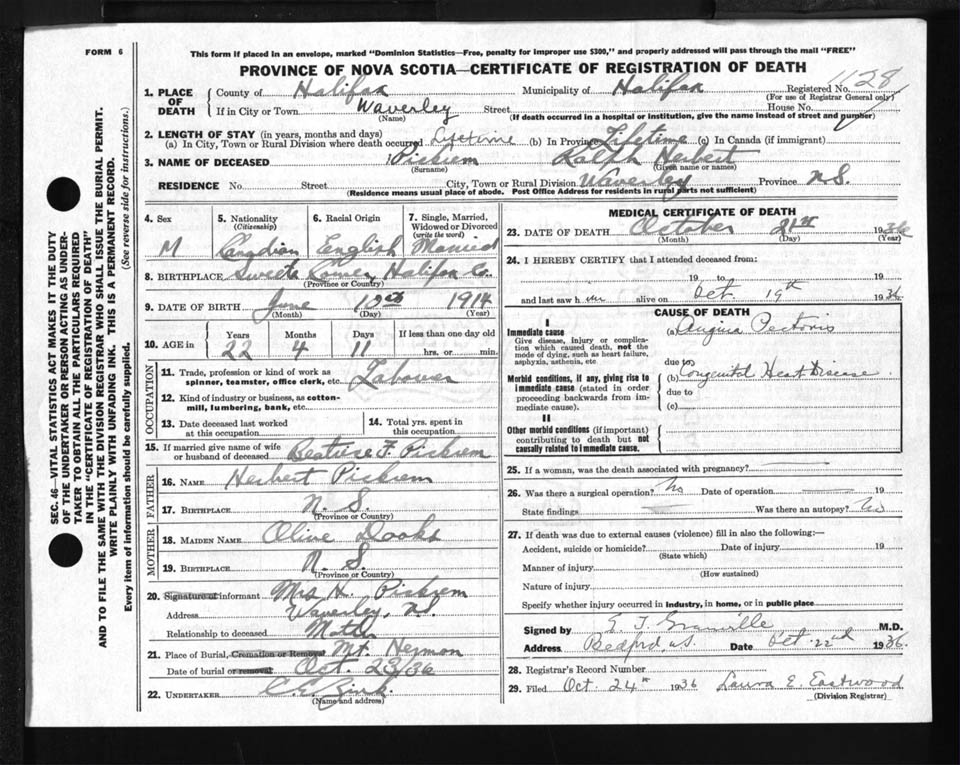 FORM 6
This form if placed in an envelope, marked "Dominion Statistics—Free, penalty for improper use $300," and properly addressed will pass through the mail "FREE"
PROVINCE OF NOVA SCOTIA—CERTIFICATE OF REGISTRATION OF DEATH
1. PLACE OF DEATH County of Halifax Municipality of Halifax Registered No. 1128
(For use of Registrar General only)
If in City or Town Waverley Street House No.
(Name) (If death occurred in a hospital or institution, give the name instead of street and number)
2. LENGTH OF STAY (in years, months and days)
(a) In City, Town or Rural Division where death occurred Lifetime (b) In Province Lifetime (c) In Canada (if immigrant)
3. NAME OF DECEASED Pickrem Ralph Herbert
(Surname) (Given name or names)
RESIDENCE No. Street City, Town or Rural Division Waverley Province N.S.
(Residence means usual place of abode. Post Office Address for residents in rural parts not sufficient)
4. Sex 5. Nationality (Citizenship) 6. Racial Origin 7. Single, Married, Widowed or Divorced (write the word)
M Canadian English Married
8. BIRTHPLACE Sweets Corner, Halifax Co.
(Province or Country)
9. DATE OF BIRTH June 10th 1914
(Month) (Day) (Year)
10. AGE in Years Months Days If less than one day old
22 4 11 hrs. or min.
OCCUPATION
11. Trade, profession or kind of work as spinner, teamster, office clerk, etc. Labourer
12. Kind of industry or business, as cotton-mill, lumbering, bank, etc.
13. Date deceased last worked at this occupation
14. Total yrs. spent in this occupation
15. If married give name of wife or husband of deceased Beatrice F. Pickrem
FATHER
16. NAME Herbert Pickrem
17. BIRTHPLACE N.S.
(Province or Country)
MOTHER
18. MAIDEN NAME Olive Dooks
19. BIRTHPLACE N.S.
(Province or Country)
20. Signature of informant Mrs H. Pickrem
Address Waverley, N.S.
Relationship to deceased Mother
21. Place of Burial, Cremation or Removal Mt. Hermon
Date of burial or removal Oct. 23/36
22. UNDERTAKER
(Name and address)
MEDICAL CERTIFICATE OF DEATH
23. DATE OF DEATH October 21st 1936
(Month) (Day) (Year)
24. I HEREBY CERTIFY that I attended deceased from:
19 to 19
and last saw him alive on Oct. 19th 1936
CAUSE OF DEATH
I
Immediate cause
Give disease, injury or complication which caused death, not the mode of dying, such as heart failure, asphyxia, asthenia, etc
(a) Angina Pectoris
due to
Morbid conditions, if any, giving rise to immediate cause (stated in order proceeding backwards from immediate cause).
(b) Congenital Heart Disease
due to
(c)
II
Other morbid conditions (if important) contributing to death but not causally related to immediate cause.
25. If a woman, was the death associated with pregnancy?
26. Was there a surgical operation? No Date of operation 19
State findings Was there an autopsy? No
27. If death was due to external causes (violence) fill in also the following:—
Accident, suicide or homicide? Date of injury 19
(State which)
Manner of injury
(How sustained)
Nature of injury
Specify whether injury occurred in industry, in home, or in public place
Signed by E J Granville M.D.
Address Bedford N.S. Date Oct 22nd 1936
28. Registrar's Record Number
29. Filed Oct. 24th 1936 Laura E. Eastwood
(Division Registrar)
SEC. 46—VITAL STATISTICS ACT MAKES IT THE DUTY
OF THE UNDERTAKER OR PERSON ACTING AS UNDER-
TAKER TO OBTAIN ALL THE PARTICULARS REQUIRED
IN THE "CERTIFICATE OF REGISTRATION OF DEATH"
AND TO FILE THE SAME WITH THE DIVISION REGISTRAR WHO SHALL ISSUE THE BURIAL PERMIT.
WRITE PLAINLY WITH UNFADING INK. THIS IS A PERMANENT RECORD.
Every item of information should be carefully supplied. (See reverse side for instructions.)